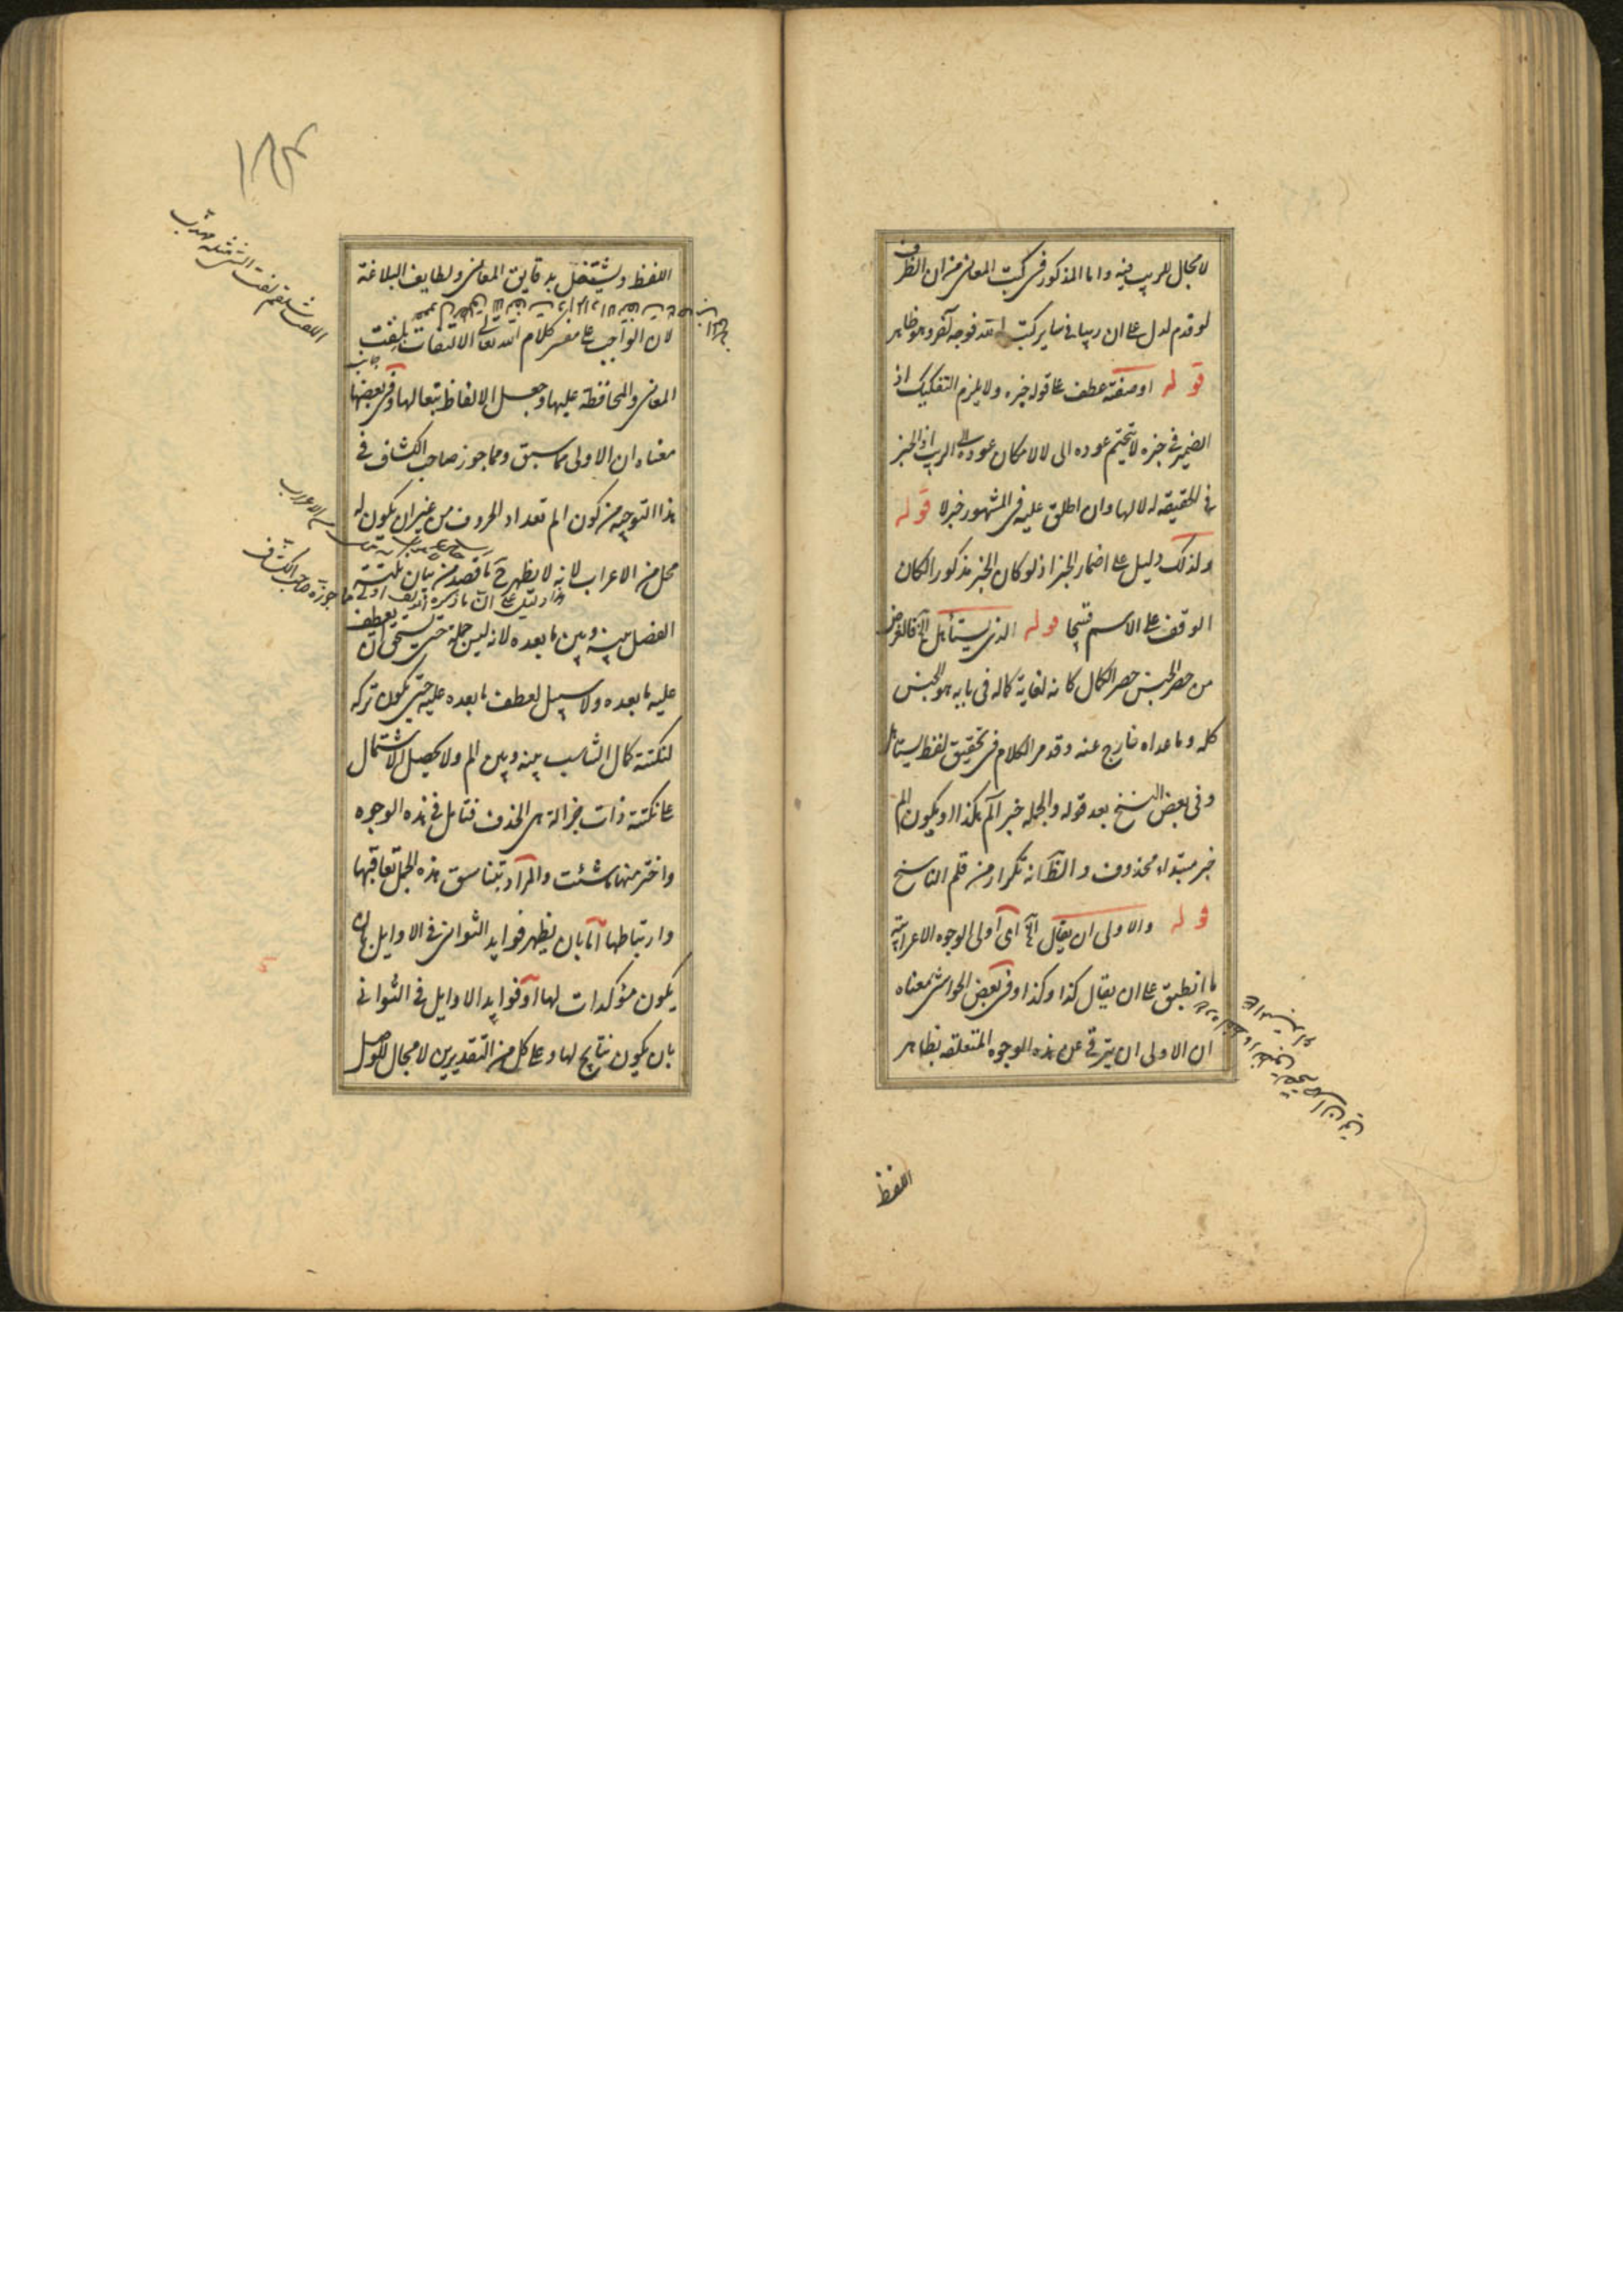 لا مجال للريب فيه واما المذكور فى كتب المعانى من ان الظرف
لو قدم لدل على ان ريبا فى ساير كتب الله فوجه آخر وهو ظاهر
قوله او صفته عطف على قوله خبره ولا يلزم التفكيك اذ
الضمير فى خبره لا يتحتم عوده الى لا لامكان عوده الى الريب اذ الخبر
فى الحقيقة له لا لها وان اطلق عليه فى المشهور خبر لا قوله
ولذلك دليل على اضمار الخبر اذ لو كان الخبر مذكورا لكان
الوقف على الاسم قبيحا قوله الذى يستأهل الخ فالغرض
من حصر الجنس حصر الكمال كانه لغاية كماله فى بابه هو الجنس
كله وما عداه خارج عنه وقد مر الكلام فى تحقيق لفظ يستاهل
وفى بعض النسخ بعد قوله والجملة خبر الم هكذا او يكون الم
خبر مبتداء محذوف والظ انه تكرار من قلم الناسخ
قوله والاولى ان يقال الخ اى اولى الوجوه الاعرابية
ما انطبق على ان يقال كذا وكذا وفى بعض الحواشى معناه
ان الاولى ان يترقى عن هذه الوجوه المتعلقة بظاهر
اللفظ
اللفظ ويشتغل بدقايق المعانى ولطايف البلاغة
لان الواجب على مفسر كلام الله تعالى الالتفات بلفت جانب
المعانى والمحافظة عليها وجعل الالفاظ تبعا لها وفى بعضها
معناه ان الاولى مما سبق ومما جوز صاحب الكشاف فى
هذا التوجيه من كون الم تعداد الحروف من غير ان يكون له
محل من الاعراب لانه لا يظهر ح ما قصد من بيان نكتة
الفصل بينه وبين ما بعده لانه ليس جملة حتى يستحق ان يعطف
عليه ما بعده ولا سبيل لعطف ما بعده عليه حتى يكون تركه
لنكتة كمال التناسب بينه وبين الم ولا يحصل الاشتمال
على نكتة ذات جزالة هى الحذف فتامل فى هذه الوجوه
واختر منها ما شئت والمراد بتناسق هذه الجمل تعاقبها
وارتباطها اما بان يظهر فوايد الثوانى فى الاوايل بان
يكون مؤكدات لها او فوايد الاوايل فى الثوانى
بان يكون نتايج لها وعلى كل من التقديرين لا مجال للوصل